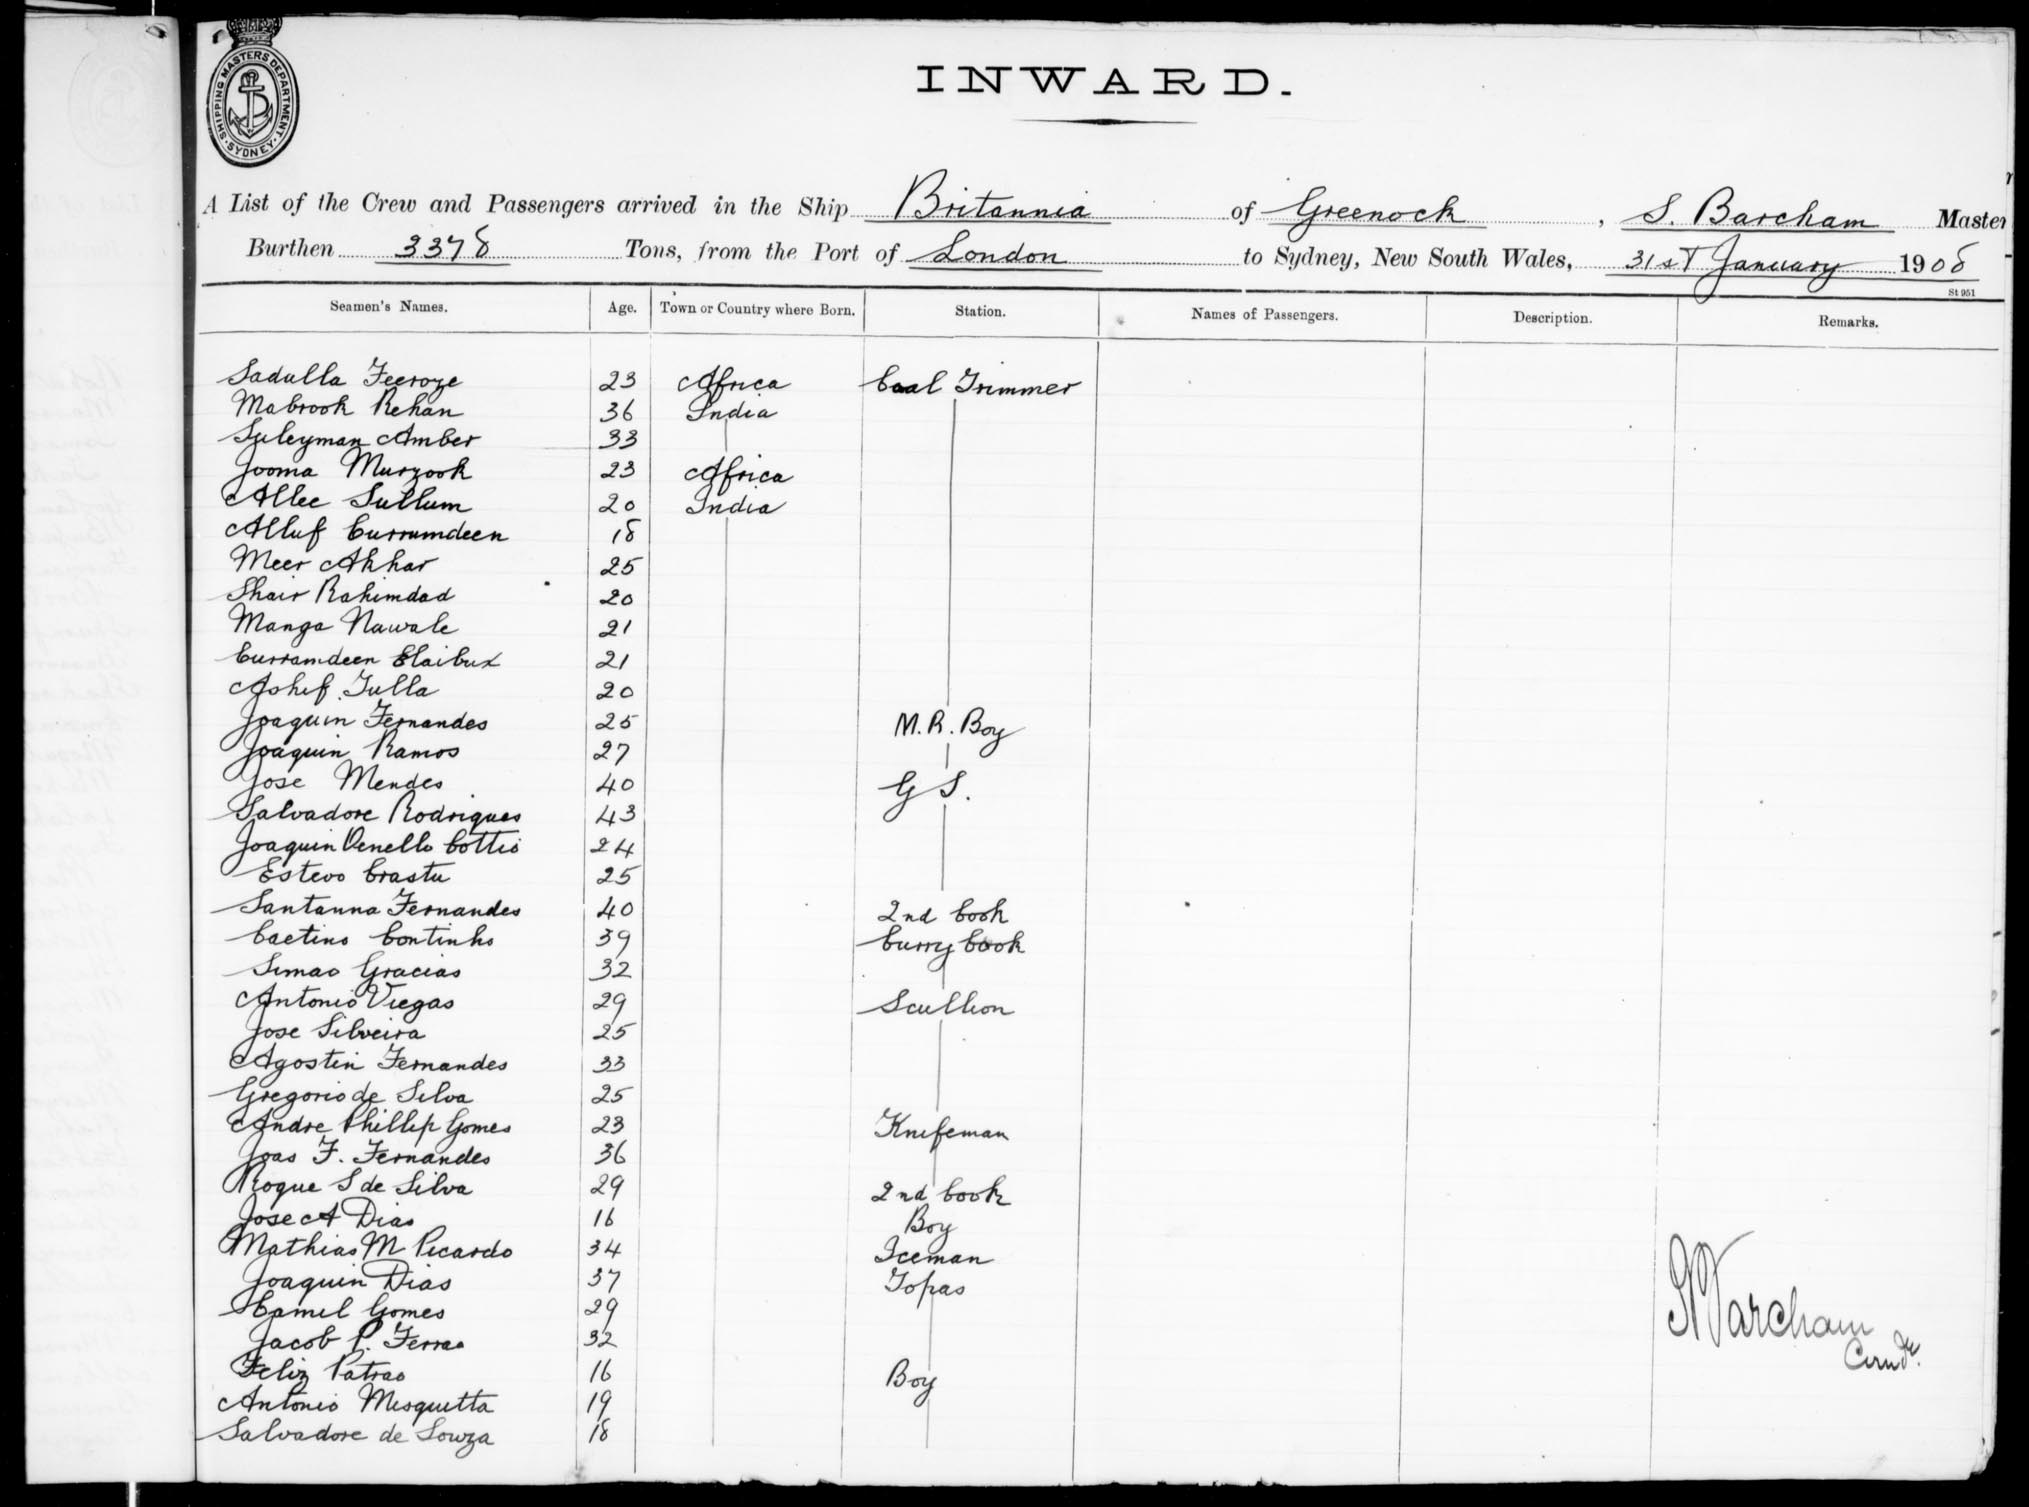 SHIPPING MASTERS DEPARTMENT. SYDNEY
INWARD.
A List of the Crew and Passengers arrived in the Ship Britannia of Greenock, S. Barcham Master
Burthen 3378 Tons, from the Port of London to Sydney, New South Wales, 31st January 1908
St 951
Seamen's Names. Age. Town or Country where Born. Station. Names of Passengers. Description. Remarks.
Sadulla Feeroze 23 Africa Coal Trimmer
Mabrook Rehan 36 India
Suleyman Amber 33
Jooma Murzook 23 Africa
Allee Sullum 20 India
Alluf Currumdeen 18
Meer Akhar 25
Shair Rahimdad 20
Manga Nawale 21
Curramdeen Elaibux 21
Ashif Tulla 20
Joaquin Fernandes 25 M.R. Boy
Joaquin Ramos 27
Jose Mendes 40 G S.
Salvadore Rodrigues 43
Joaquin Venello Cottio 24
Estevo Crastu 25
Santanna Fernandes 40 2nd Cook
Caetino Continho 39 Curry Cook
Simao Gracias 32
Antonio Viegas 29 Scullion
Jose Silveira 25
Agostin Fernandes 33
Gregorio de Silva 25
Andre Phillip Gomes 23 Knifeman
Joas F. Fernandes 36
Roque S de Silva 29 2nd Cook
Jose A Dias 16 Boy
Mathias M Picardo 34 Iceman
Joaquin Dias 37 Topas
Camil Gomes 29
Jacob P. Ferrao 32
Feliz Patrao 16 Boy
Antonio Misquitta 19
Salvadore de Souza 18
S Barcham
Comdr.